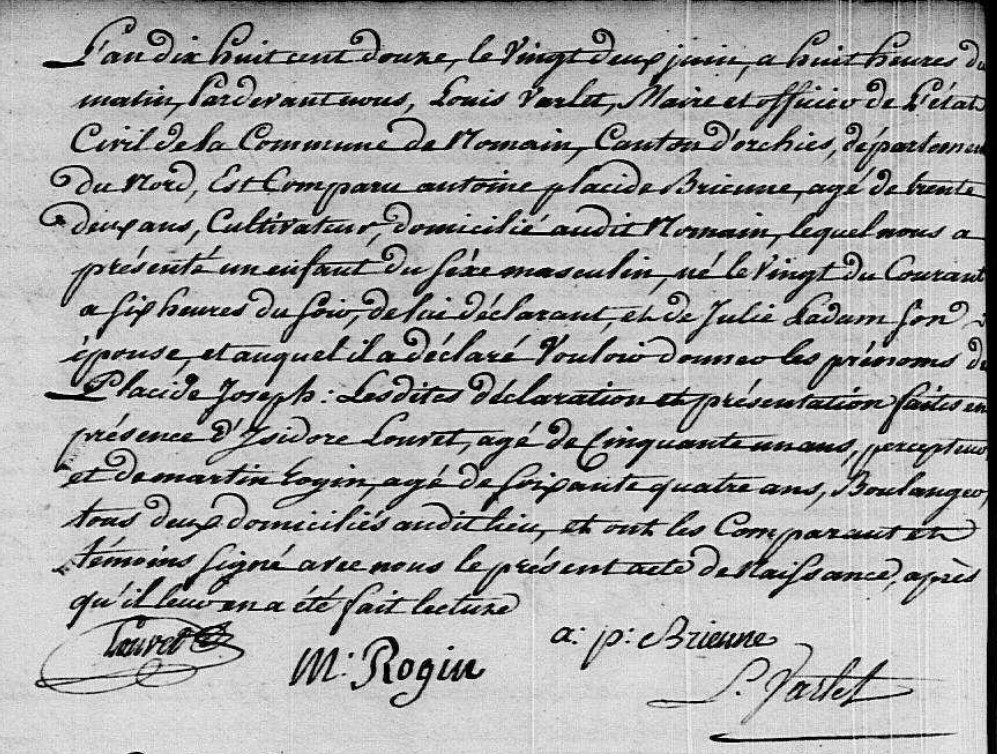 L'an dix huit cent douze, le Vingt deux juin, a huit heures du
matin, Pardevant nous, Louis Varlet, Maire et officier de L'état
Civil de la Commune de Nomain, Canton d'orchies, département
du Nord, Est Comparu antoine placide Brienne, agé de trente
deux ans, Cultivateur, domicilié audit Nomain, lequel nous a
présenté un enfant du séxe masculin, né le Vingt du Courant
a six heures du soir, de lui déclarant, et de Julie Ladam son
épouse, et auquel il a déclaré Vouloir donner les prénoms de
Placide Joseph : Lesdites déclaration et présentation faites en
présence d'Isidore Louvet, agé de Cinquante un ans, percepteur,
et de martin Rogin, agé de soixante quatre ans, Boulanger,
tous deux domiciliés audit lieu, et ont les Comparant et
témoins signé avec nous le présent acte de Naissance, après
qu'il leur en a été fait lecture
Louvet
M: Rogin
a: p: Brienne
L. Varlet